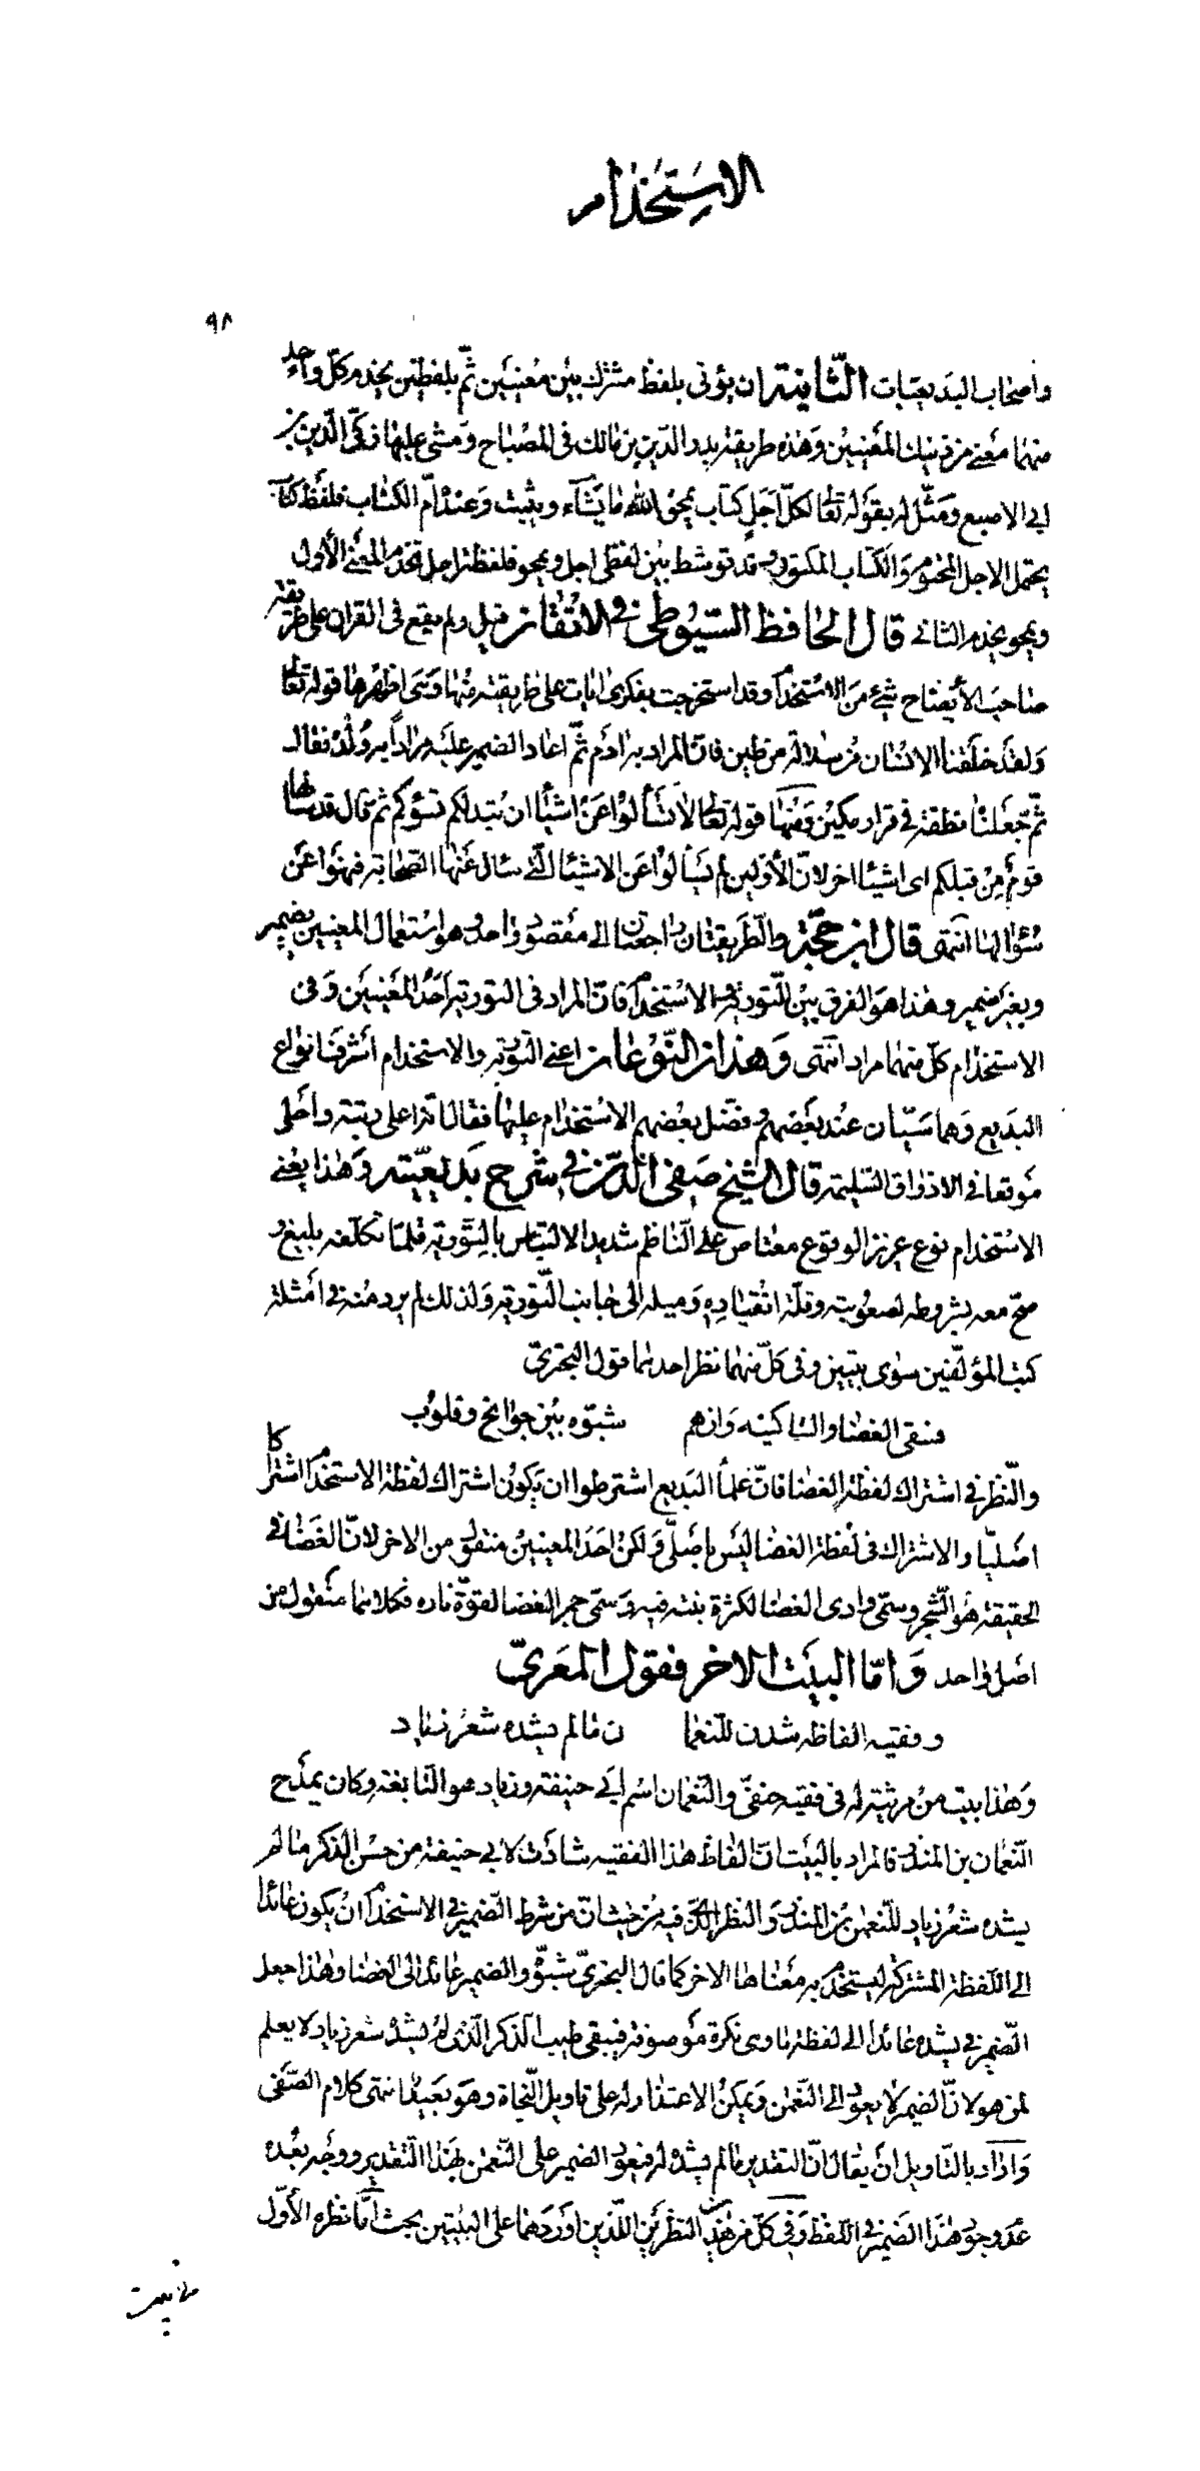 الاستخدام
٩٨
واصحاب البديعيات الثانية ان يؤتى بلفظ مشترك بين معنيين ثم بلفظين يخدم كل واحد
منهما معنى من ذينك المعنيين وهذه طريقة بدر الدين بن مالك فى المصباح ومشى عليها زكى الدين بن
ابى الاصبع ومثل له بقوله تعالى لكل اجل كتاب يمحو الله ما يشاء ويثبت وعنده ام الكتاب فلفظ كتاب
يحتمل الاجل المحتوم والكتاب المكتوب وقد توسط بين لفظى اجل ويمحو فلفظة اجل تخدم المعنى الأول
ويمحو يخدم الثانى قال الحافظ السيوطى فى الاتقان قيل ولم يقع فى القران على طريقة
صاحب الأيضاح شئ من الاستخدام وقد استخرجت بفكرى ايات على طريقته منها وهى اظهرها قوله تعالى
ولقد خلقنا الانسان من سلالة من طين فان المراد به ادم ثم اعاد الضمير عليه مرادا به ولده فقال
ثم جعلناه نطفة فى قرار مكين ومنها قوله تعالى لا تسألوا عن اشيأ ان تبد لكم تسؤكم ثم قال قد سالها
قوم من قبلكم اى اشيأ اخر لان الأولين لم يسألوا عن الاشيأ التى سال عنها الصحابة فنهوا عن
سؤالها انتهى قال ابن حجة والطريقتان راجعتان الى مقصود واحد وهو استعمال المعنيين بضمير
وبغير ضمير وهذا هو الفرق بين التورية والاستخدام فان المراد فى التورية احد المعنيين وفى
الاستخدام كل منهما مراد انتهى وهذان النوعان اعنى التورية والاستخدام اشرف انواع
البديع وهما سيان عند بعضهم وفضل بعضهم الاستخدام عليها فقال انه اعلى رتبة واحلى
موقعا فى الاذواق السليمة قال الشيخ صفى الدين فى شرح بديعيته وهذا يعنى
الاستخدام نوع عزيز الوقوع معتاص على الناظم شديد الالتباس بالتورية قلما تكلفه بليغ و
صح معه بشروطه لصعوبته وقلة انقياده وميله الى جانب التورية ولذلك لم يرد منه فى امثلة
كتب المؤلفين سوى بيتين وفى كل منهما نظر احدهما قول البحترى
فسقى الغضا والساكنيه وان هم شبوه بين جوانح وقلوب
والنظر فى اشتراك لفظة الغضا فان علمأ البديع اشترطوا ان يكون اشتراك لفظة الاستخدام اشتراكا
اصليا والاشتراك فى لفظة الغضا ليس باصلى ولكن احد المعنيين منقول من الاخر لان الغضا فى
الحقيقة هو الشجر وسمى وادى الغضا لكثرة نبته فيه وسمى جمر الغضا لقوة ناره فكلاهما منقول من
اصل واحد واما البيت الاخر فقول المعرى
وفقيه الفاظه شدن للنعما ن مالم يشده شعر زياد
وهذا بيت من مرثية له فى فقيه حنفى والنعمان اسم ابى حنيفة وزياد هو النابغة وكان يمدح
النعمان بن المنذر فالمراد بالبيت ان الفاظ هذا الفقيه شادت لابى حنيفة من حسن الذكر ما لم
يشده شعر زياد للنعمن بن المنذر والنظر الذى فيه من حيث ان من شرط الضمير فى الاستخدام ان يكون عائدا
الى اللفظة المشتركة ليستخدم به معناها الاخر كما قال البحترى شبوه والضمير عائد الى الغضا وهذا جعل
الضمير فى يشده عائدا الى لفظة ما وهى نكرة موصوفة فبقى طيب الذكر الذى لم يشده شعر زياد لا يعلم
لمن هو لان الضمير لا يعود الى النعمن ويمكن الاعتذار له على تاويل النحاة وهو بعيد انتهى كلام الصفى
واراد بالتاويل ان يقال ان التقدير مالم يشده له فيعود الضمير على النعمن بهذا التقدير ووجه بعده
عدم وجود هذا الضمير فى اللفظ وفى كل من هذين النظرين اللذين اوردهما على البيتين بحث اما نظره الأول